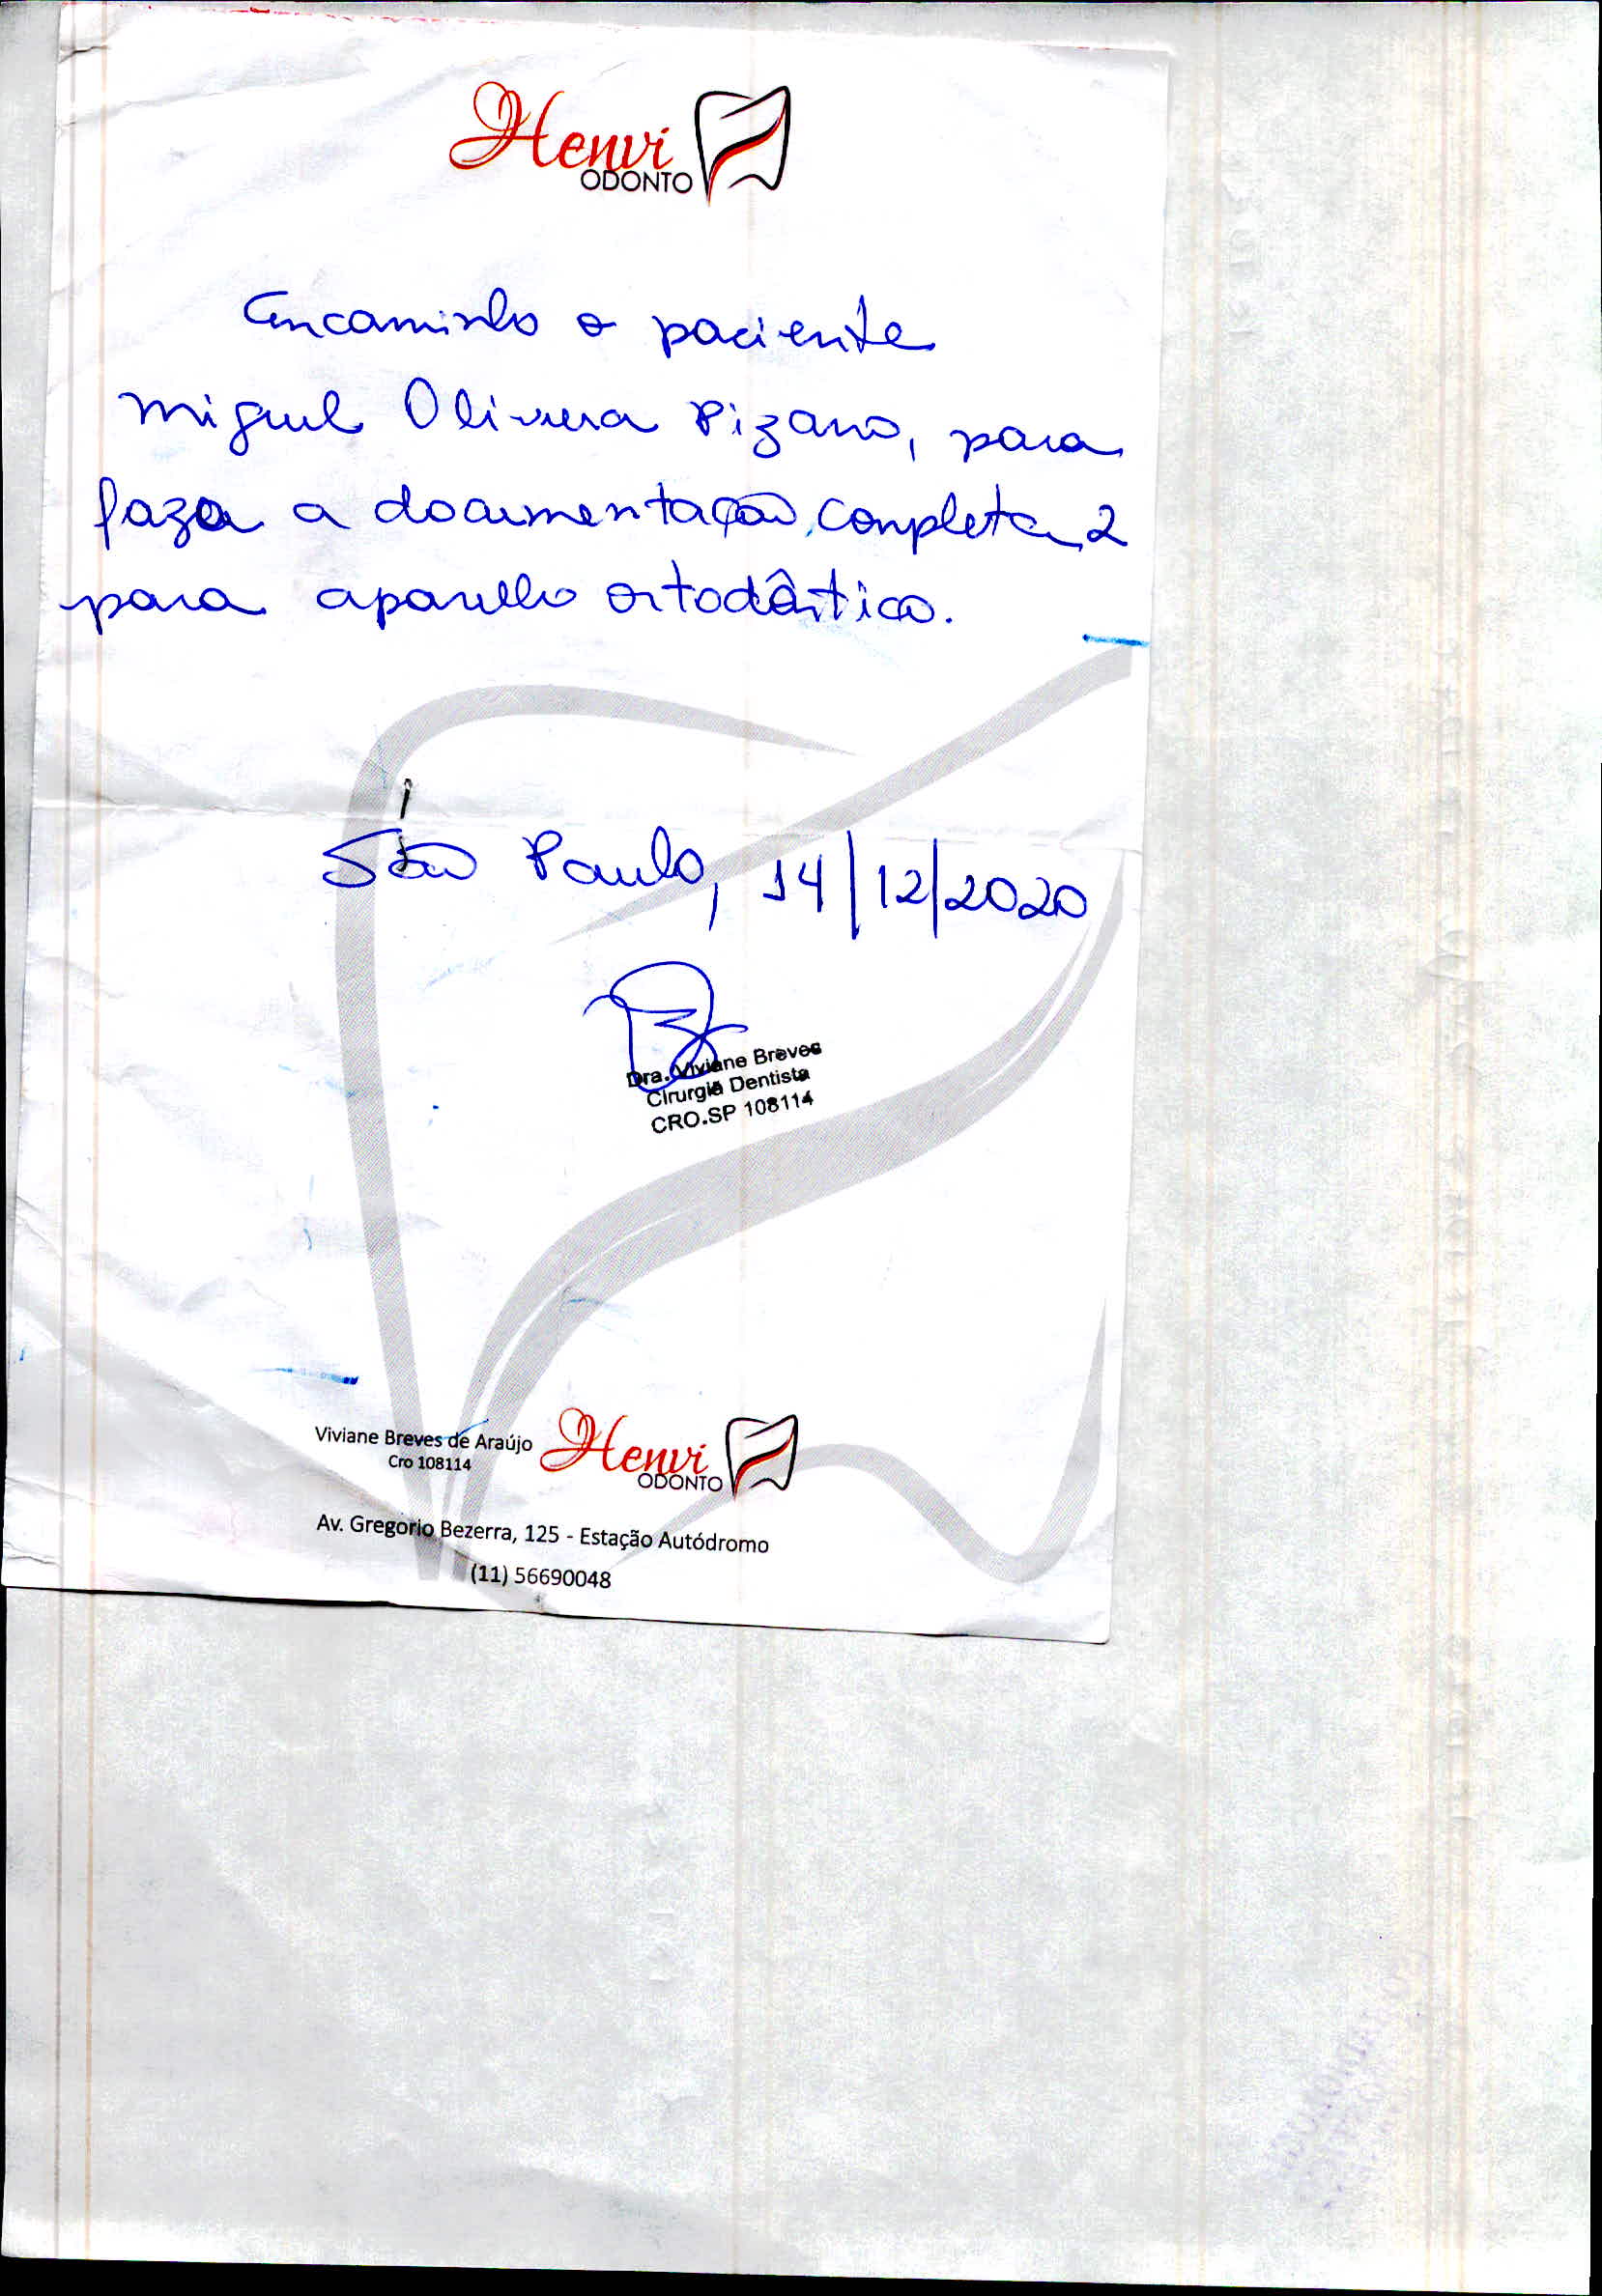 Henvi
ODONTO
Encaminho o paciente
Miguel Oliveira Pizano, para
fazer a documentação completa 2
para aparelho ortodôntico.
São Paulo, 14/12/2020
Dra. Viviane Breves
Cirurgiã Dentista
CRO.SP 108114
Viviane Breves de Araújo
Cro 108114
Henvi
ODONTO
Av. Gregório Bezerra, 125 - Estação Autódromo
(11) 56690048